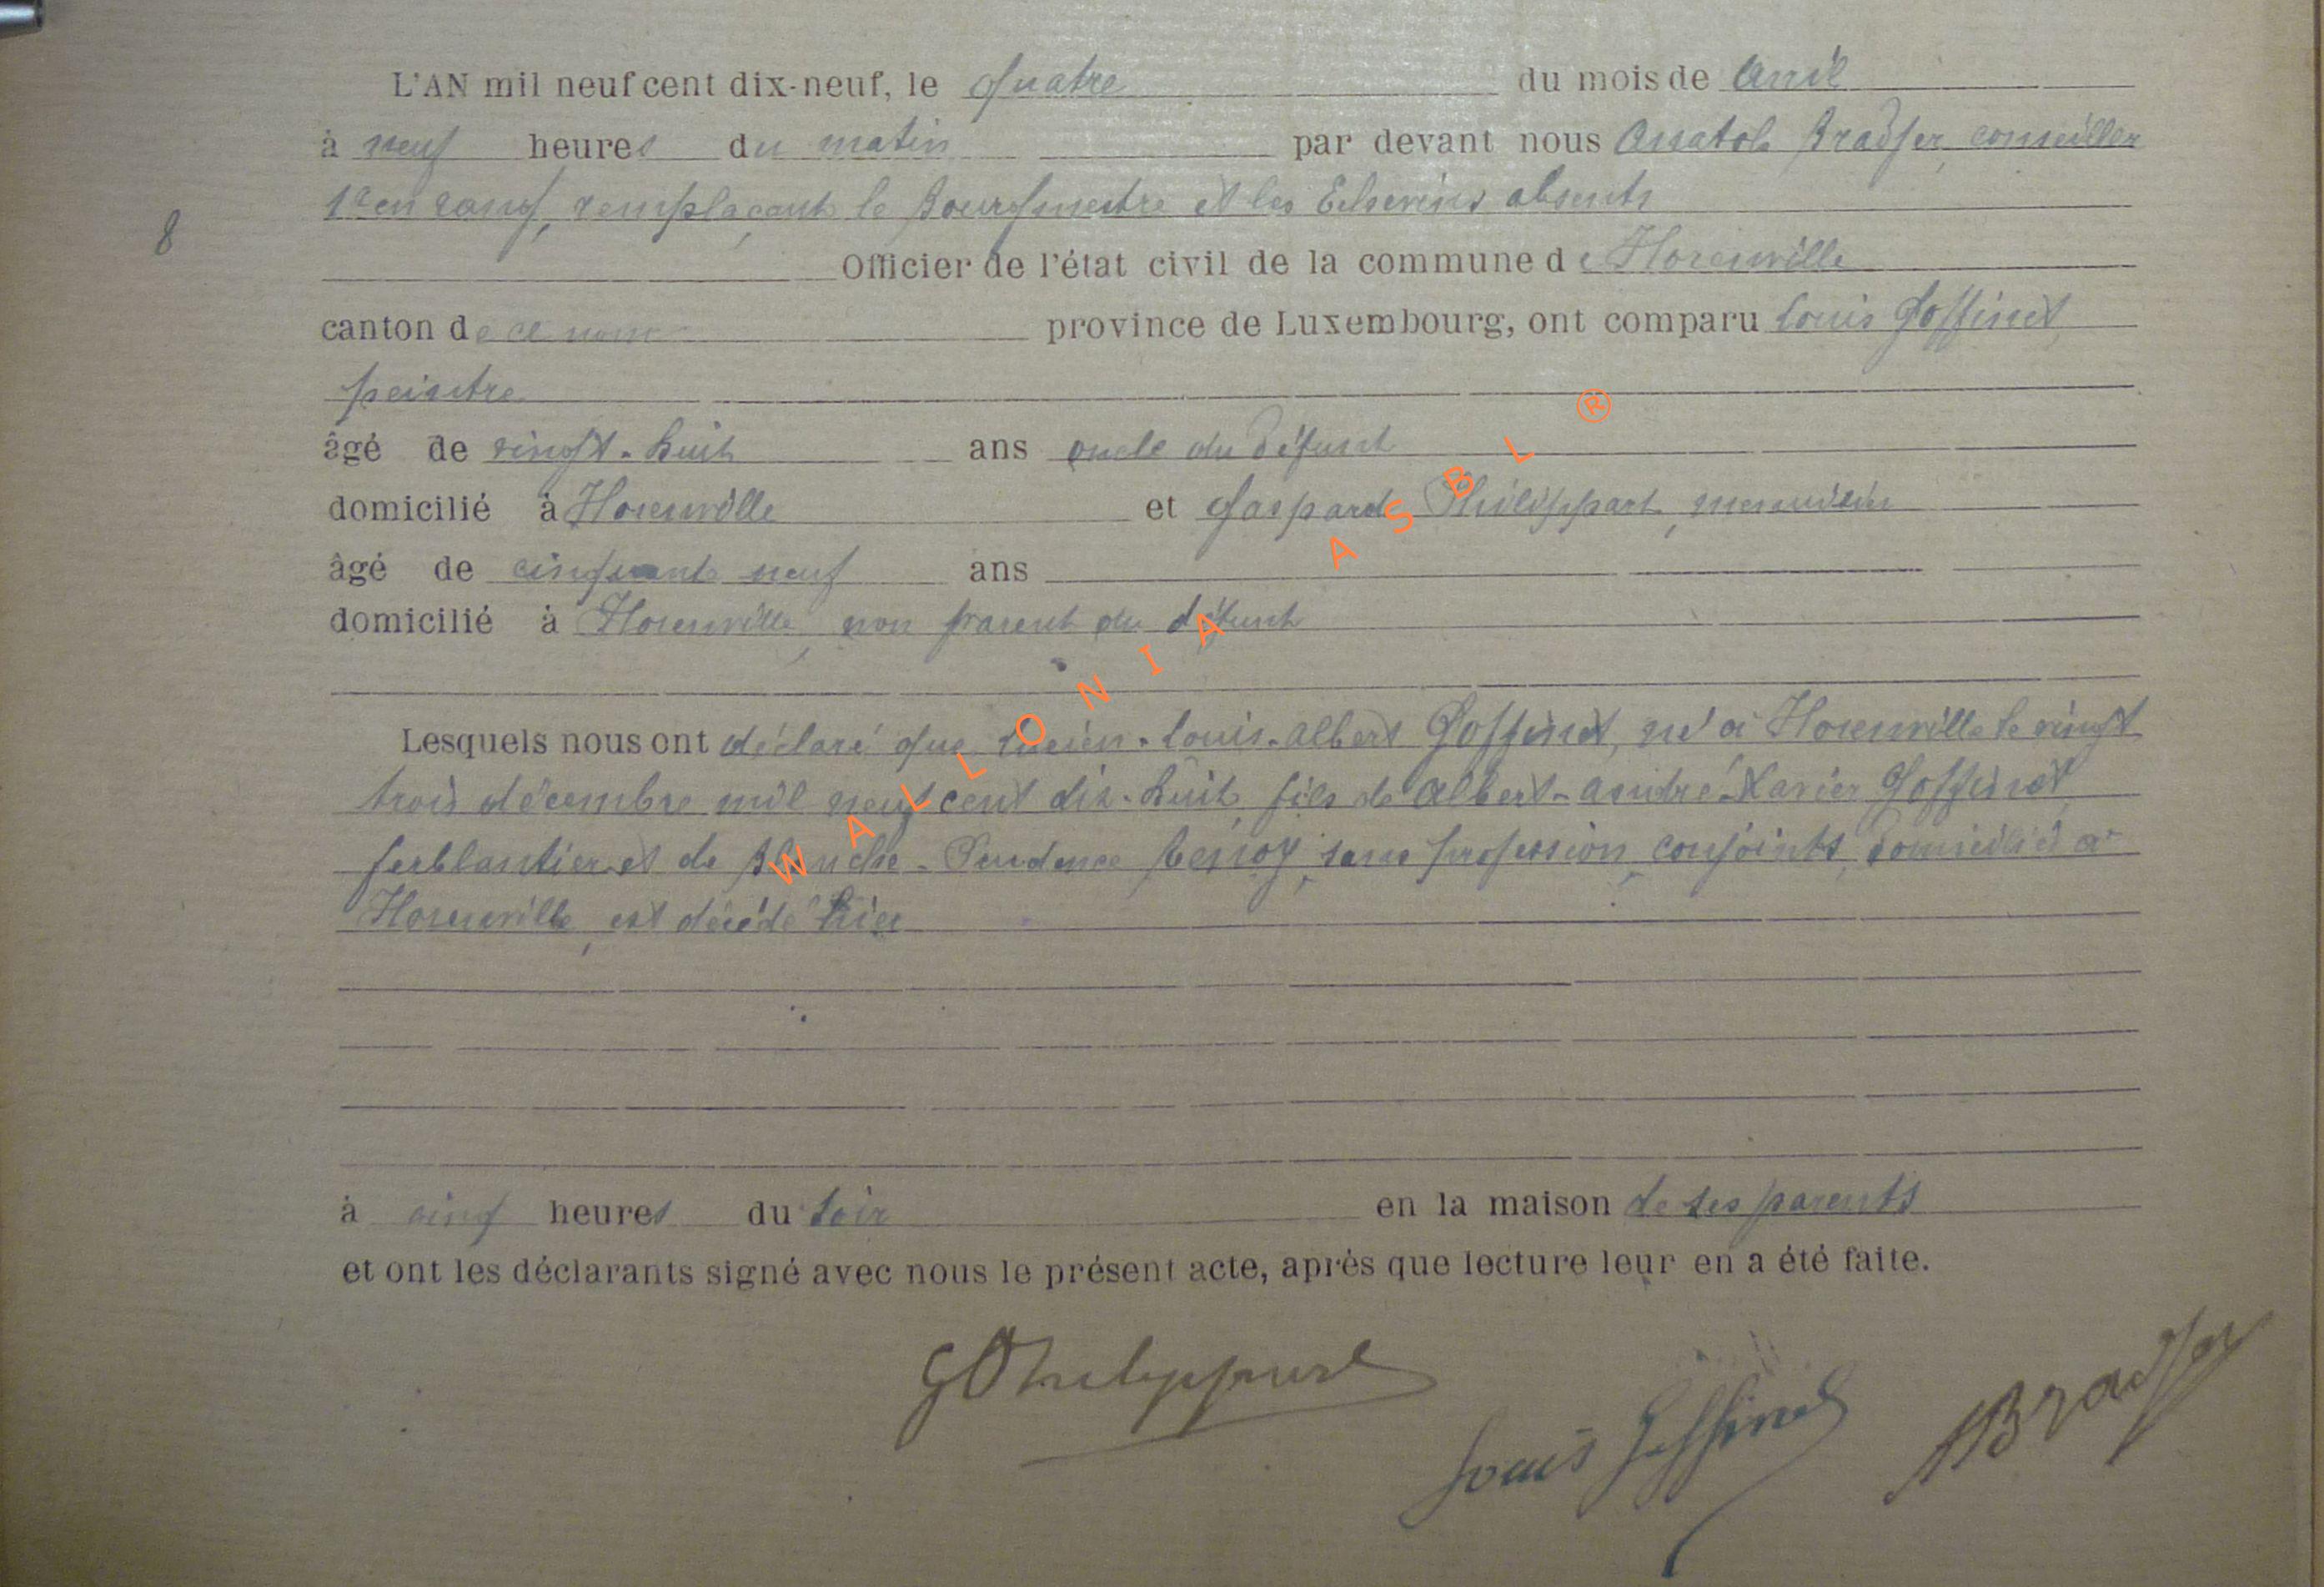 L'AN mil neuf cent dix-neuf, le quatre du mois de avril
à neuf heures du matin par devant nous Anatole Bradfer, conseiller
1er en rang, remplaçant le Bourgmestre et les Echevins absents
8
Officier de l'état civil de la commune de Florenville
canton de ce nom province de Luxembourg, ont comparu Louis Goffinet,
peintre
âgé de vingt-huit ans oncle du défunt
domicilié à Florenville et Gaspard Philippart, menuisier
âgé de cinquante neuf ans
domicilié à Florenville, non parent du défunt
Lesquels nous ont déclaré que Lucien-Louis-Albert Goffinet, né à Florenville le vingt
trois décembre mil neuf cent dix-huit, fils de Albert-André-Xavier Goffinet,
ferblantier et de Blanche-Prudence sans profession, conjoints, domiciliés à
Florenville, est décédé hier
à cinq heures du soir en la maison de ses parents
et ont les déclarants signé avec nous le présent acte, après que lecture leur en a été faite.
G Philippart
Louis Goffinet
A Bradfer
WALLONIA ASBL ®